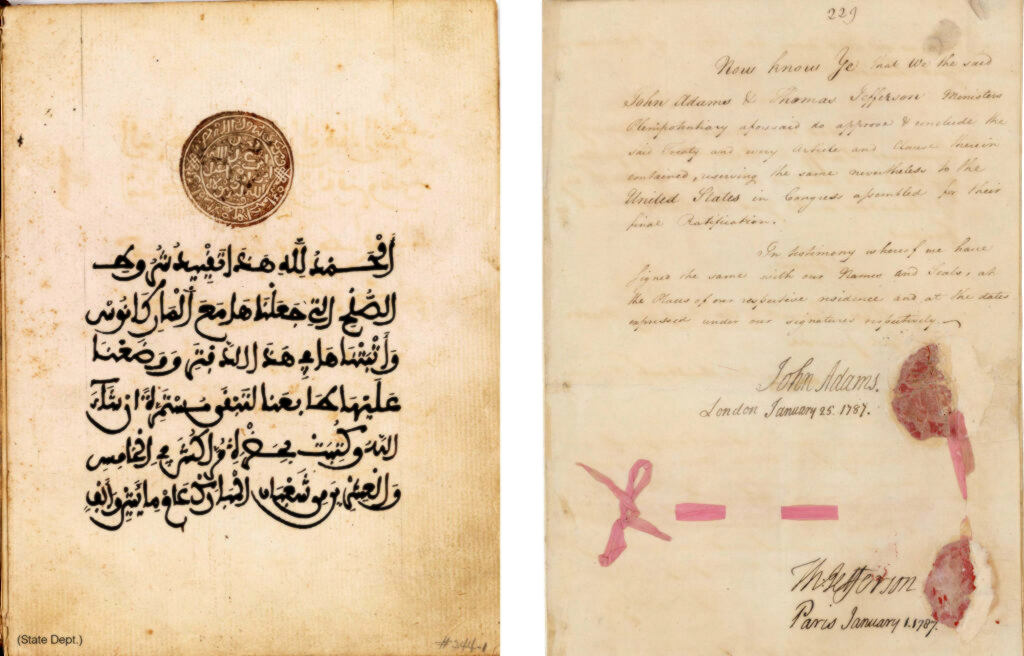 الحمد لله هذا تقييد شروط
الصلح التي جعلناها مع الماركانوس
وأثبتناها في هذا الدفتر ووضعنا
عليها طابعنا لتبقى مستمرة إن شاء
الله وكتبت بحضرة مراكش في الخامس
والعشرين من شعبان المبارك عام مايتين وألف
(State Dept.)
#244-1
229
Now know Ye that We the said
John Adams & Thomas Jefferson Ministers
Plenipotentiary aforesaid do approve & conclude the
said Treaty and every Article and Clause therein
contained, reserving the same nevertheless to the
United States in Congress assembled for their
final Ratification.
In testimony whereof we have
signed the same with our Names and Seals, at
the Places of our respective residence and at the dates
expressed under our signatures respectively.
John Adams.
London January 25. 1787.
Th: Jefferson
Paris January 1. 1787.